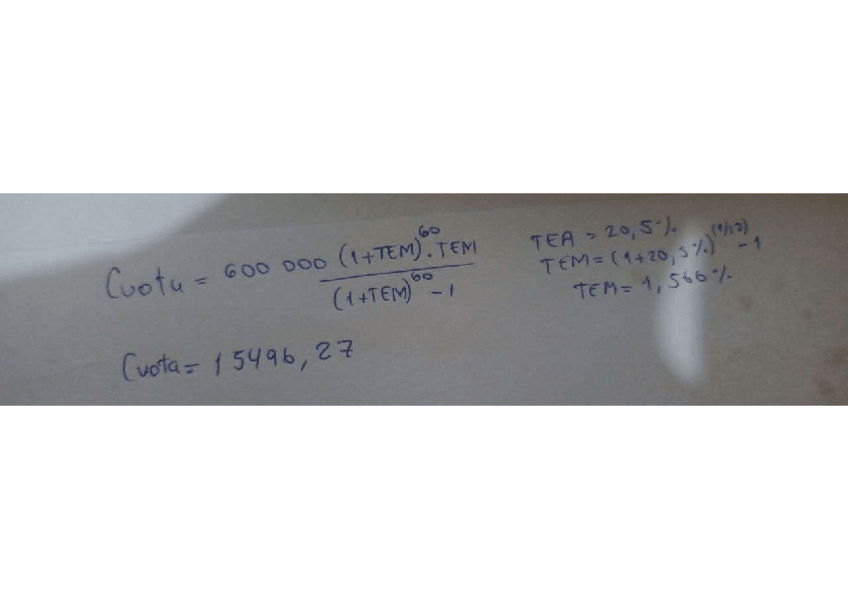 Cuota = 600 000 (1+TEM)^60 . TEM
(1+TEM)^60 - 1
Cuota = 15496,27
TEA = 20,5%
TEM = (1+20,5%)^(1/12) - 1
TEM = 1,566%